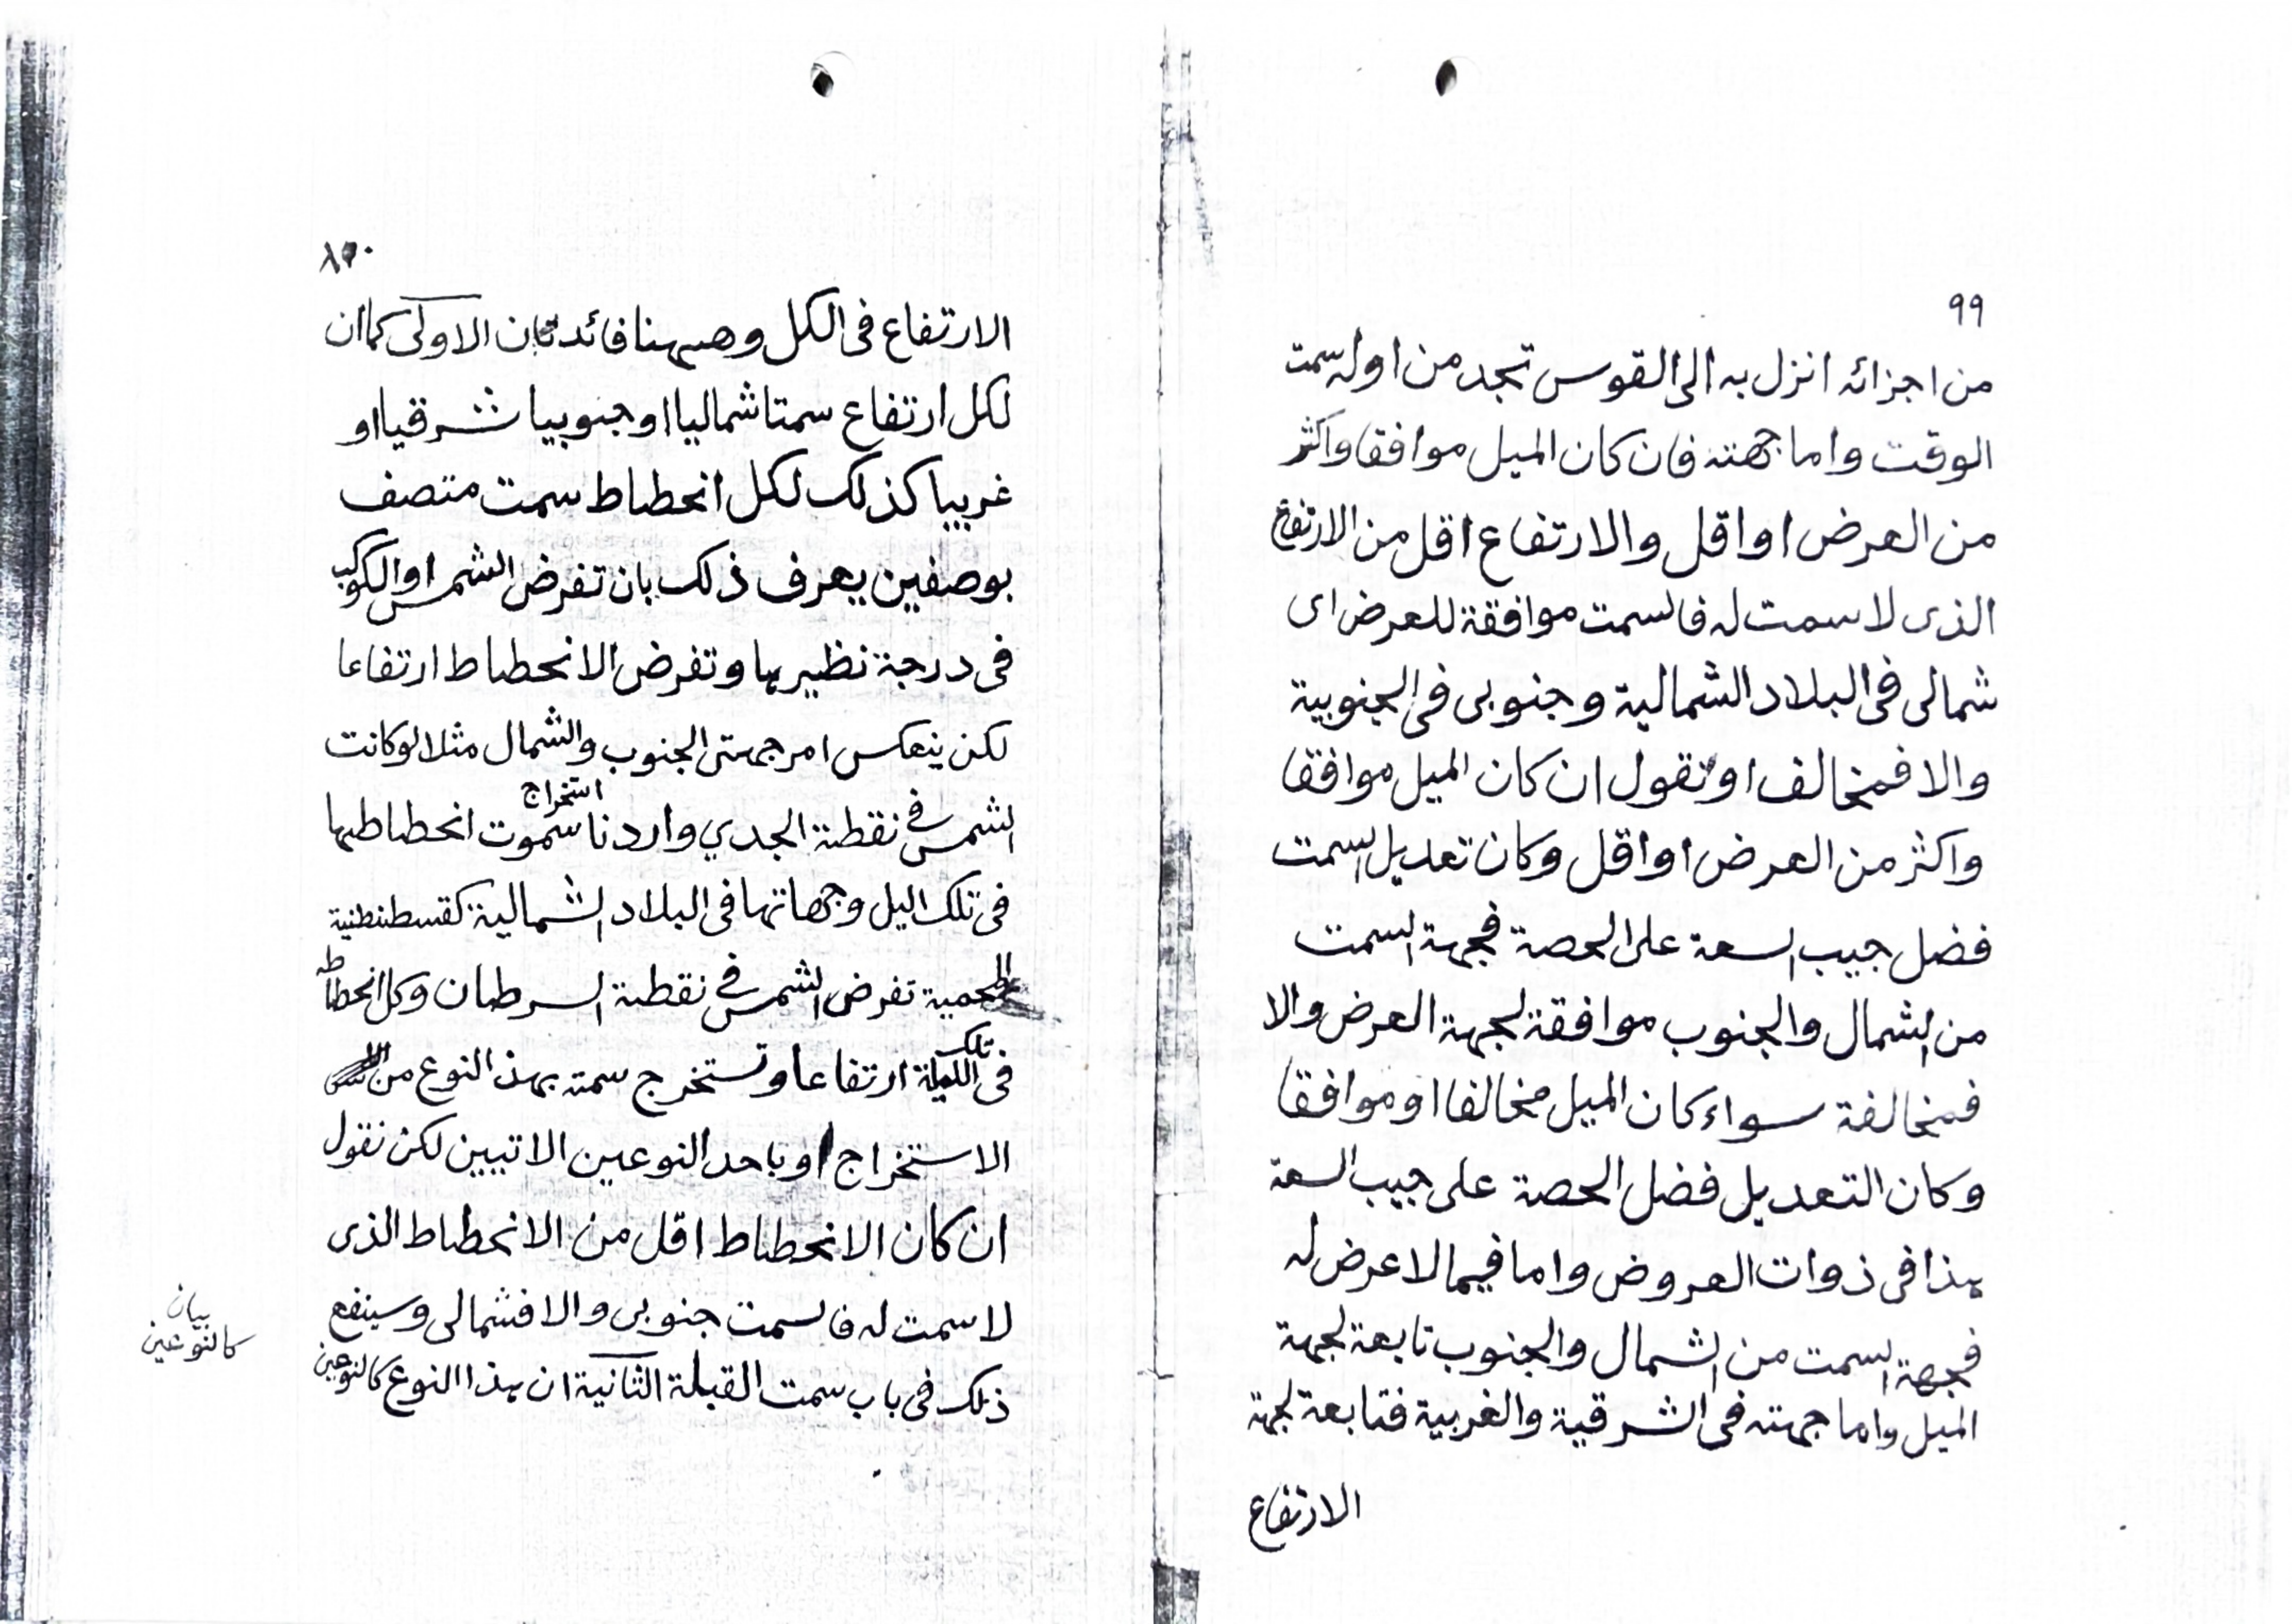 ٩٩
من اجزائه انزل به الى القوس تجد من اوله سمت
الوقت واما جهته فان كان الميل موافقا واكثر
من العرض او اقل والارتفاع اقل من الارتفاع
الذى لا سمت له فالسمت موافقة للعرض اى
شمالى فى البلاد الشمالية وجنوبى فى الجنوبية
والا فمخالف او تقول ان كان الميل موافقا
واكثر من العرض او اقل وكان تعديل السمت
فضل جيب السعة على الحصة فجهة السمت
من الشمال والجنوب موافقة لجهة العرض والا
فمخالفة سواء كان الميل مخالفا او موافقا
وكان التعديل فضل الحصة على جيب السعة
هذا فى ذوات العروض واما فيما لا عرض له
فجهة السمت من الشمال والجنوب تابعة لجهة
الميل واما جهته فى الشرقية والغربية فتابعة لجهة
الارتفاع
الارتفاع فى الكل وههنا فائدتان الاولى كما ان
لكل ارتفاع سمتا شماليا او جنوبيا شرقيا او
غربيا كذلك لكل انحطاط سمت متصف
بوصفين يعرف ذلك بان تفرض الشمس او الكوكب
فى درجة نظيرها وتفرض الانحطاط ارتفاعا
لكن ينعكس امر جهتى الجنوب والشمال مثلا لو كانت
الشمس في نقطة الجدي واردنا استخراج سموت انحطاطها
فى تلك اليل وجهاتها فى البلاد الشمالية كقسطنطنية
المحمية تفرض الشمس في نقطة السرطان وكل انحطاط
فى تلك الليلة ارتفاعا وتستخرج سمته بهذ النوع من
الاستخراج او باحد النوعين الاتيين لكن نقول
ان كان الانحطاط اقل من الانحطاط الذى
لا سمت له فالسمت جنوبى والا فشمالى وسينفع
ذلك فى باب سمت القبلة الثانية ان هذا النوع كالنوعين
بيان
كالنوعين